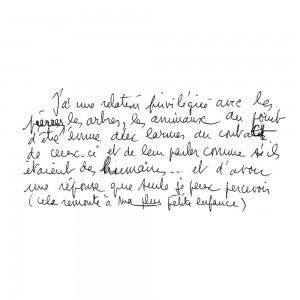 J'ai une relation privilégiée avec les
pierres, les arbres, les animaux au point
d'être émue aux larmes au contact
de ceux-ci et de leur parler comme s'ils
étaient des humains... et d'avoir
une réponse que seule je peux percevoir
(cela remonte à ma plus petite enfance)